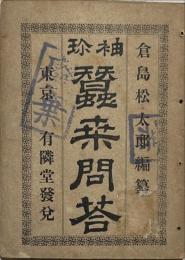 倉島松太郎編纂
袖珍
蠶桒問荅
東京 有隣堂發兌